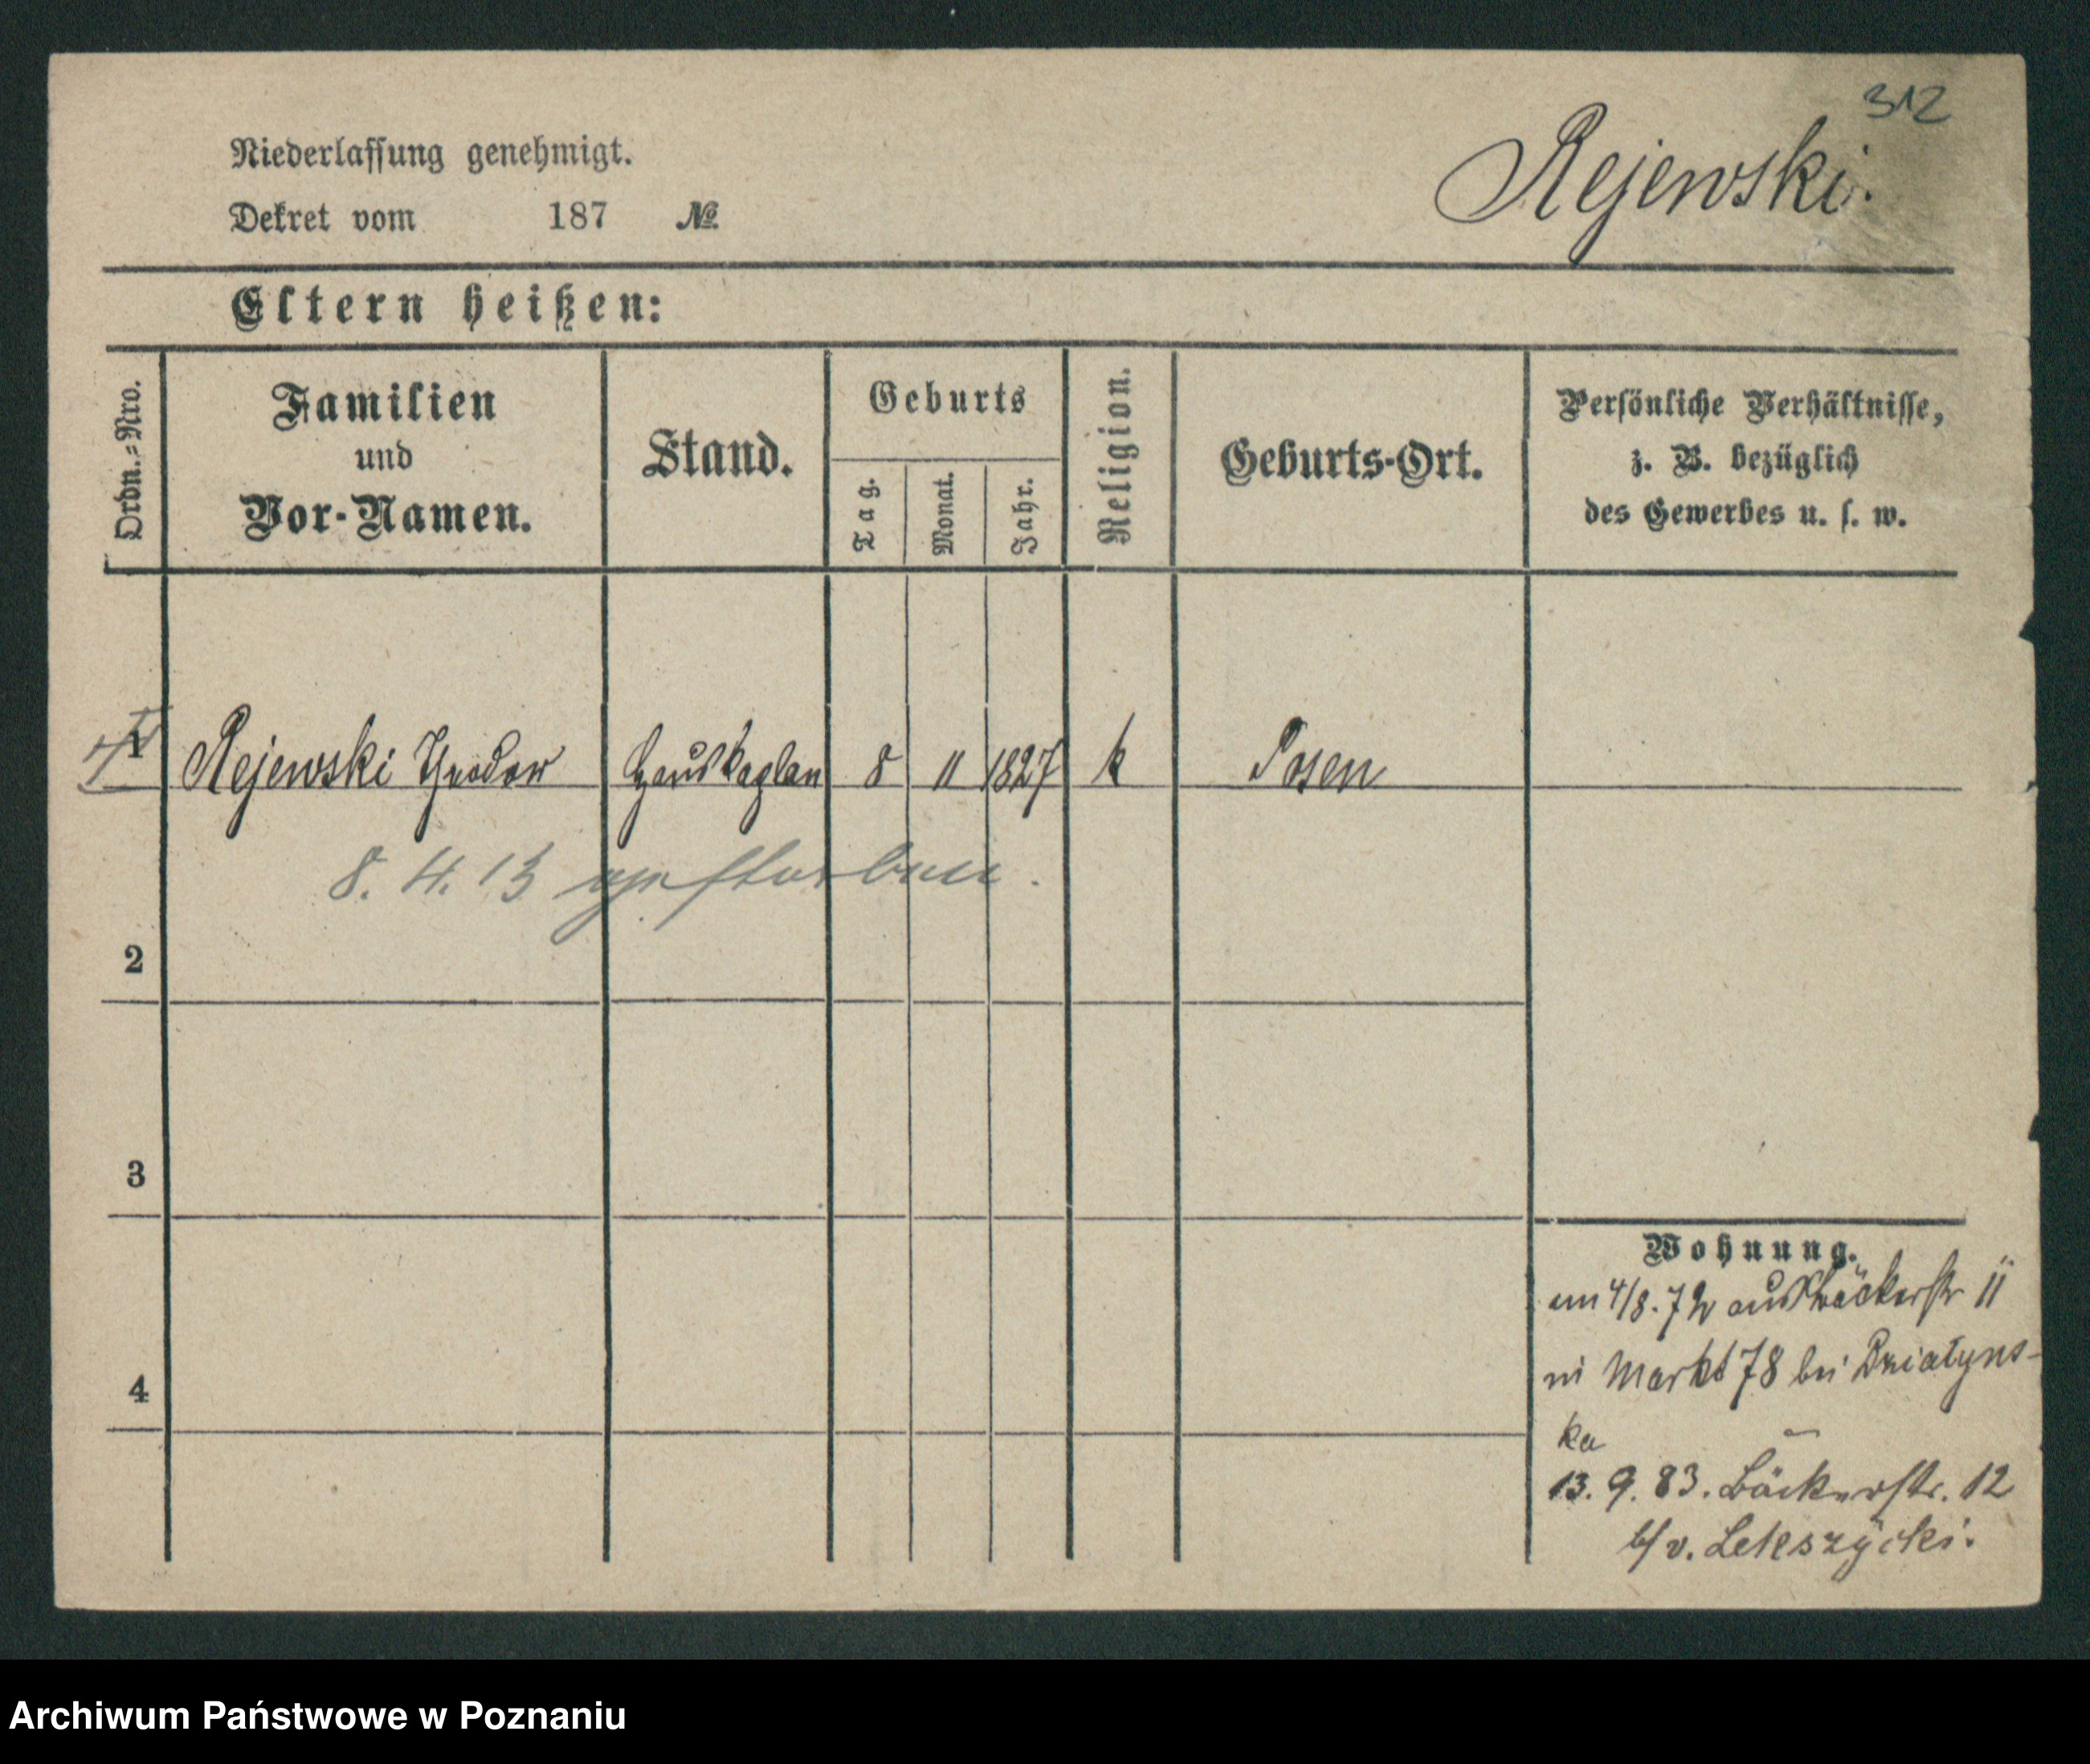 312
Niederlassung genehmigt.
Rejewski.
Dekret vom 187 №
Eltern heißen:
Ordn.-Nro.
Familien
und
Vor-Namen.
Stand.
Geburts
Tag.
Monat.
Jahr.
Religion.
Geburts-Ort.
Persönliche Verhältnisse,
z. B. bezüglich
des Gewerbes u. s. w.
1 Rejewski Theodor Hauskaplan 8 11 1827 k Posen
8. 4. 13 gestorben.
2
3
4
Wohnung.
am 4/8. 72 aus Bäckerstr 11
in Markt 78 bei Dzialyns-
ka
13. 9. 83. Bäckerstr. 12
b/ v. Lekszycki.
Archiwum Państwowe w Poznaniu